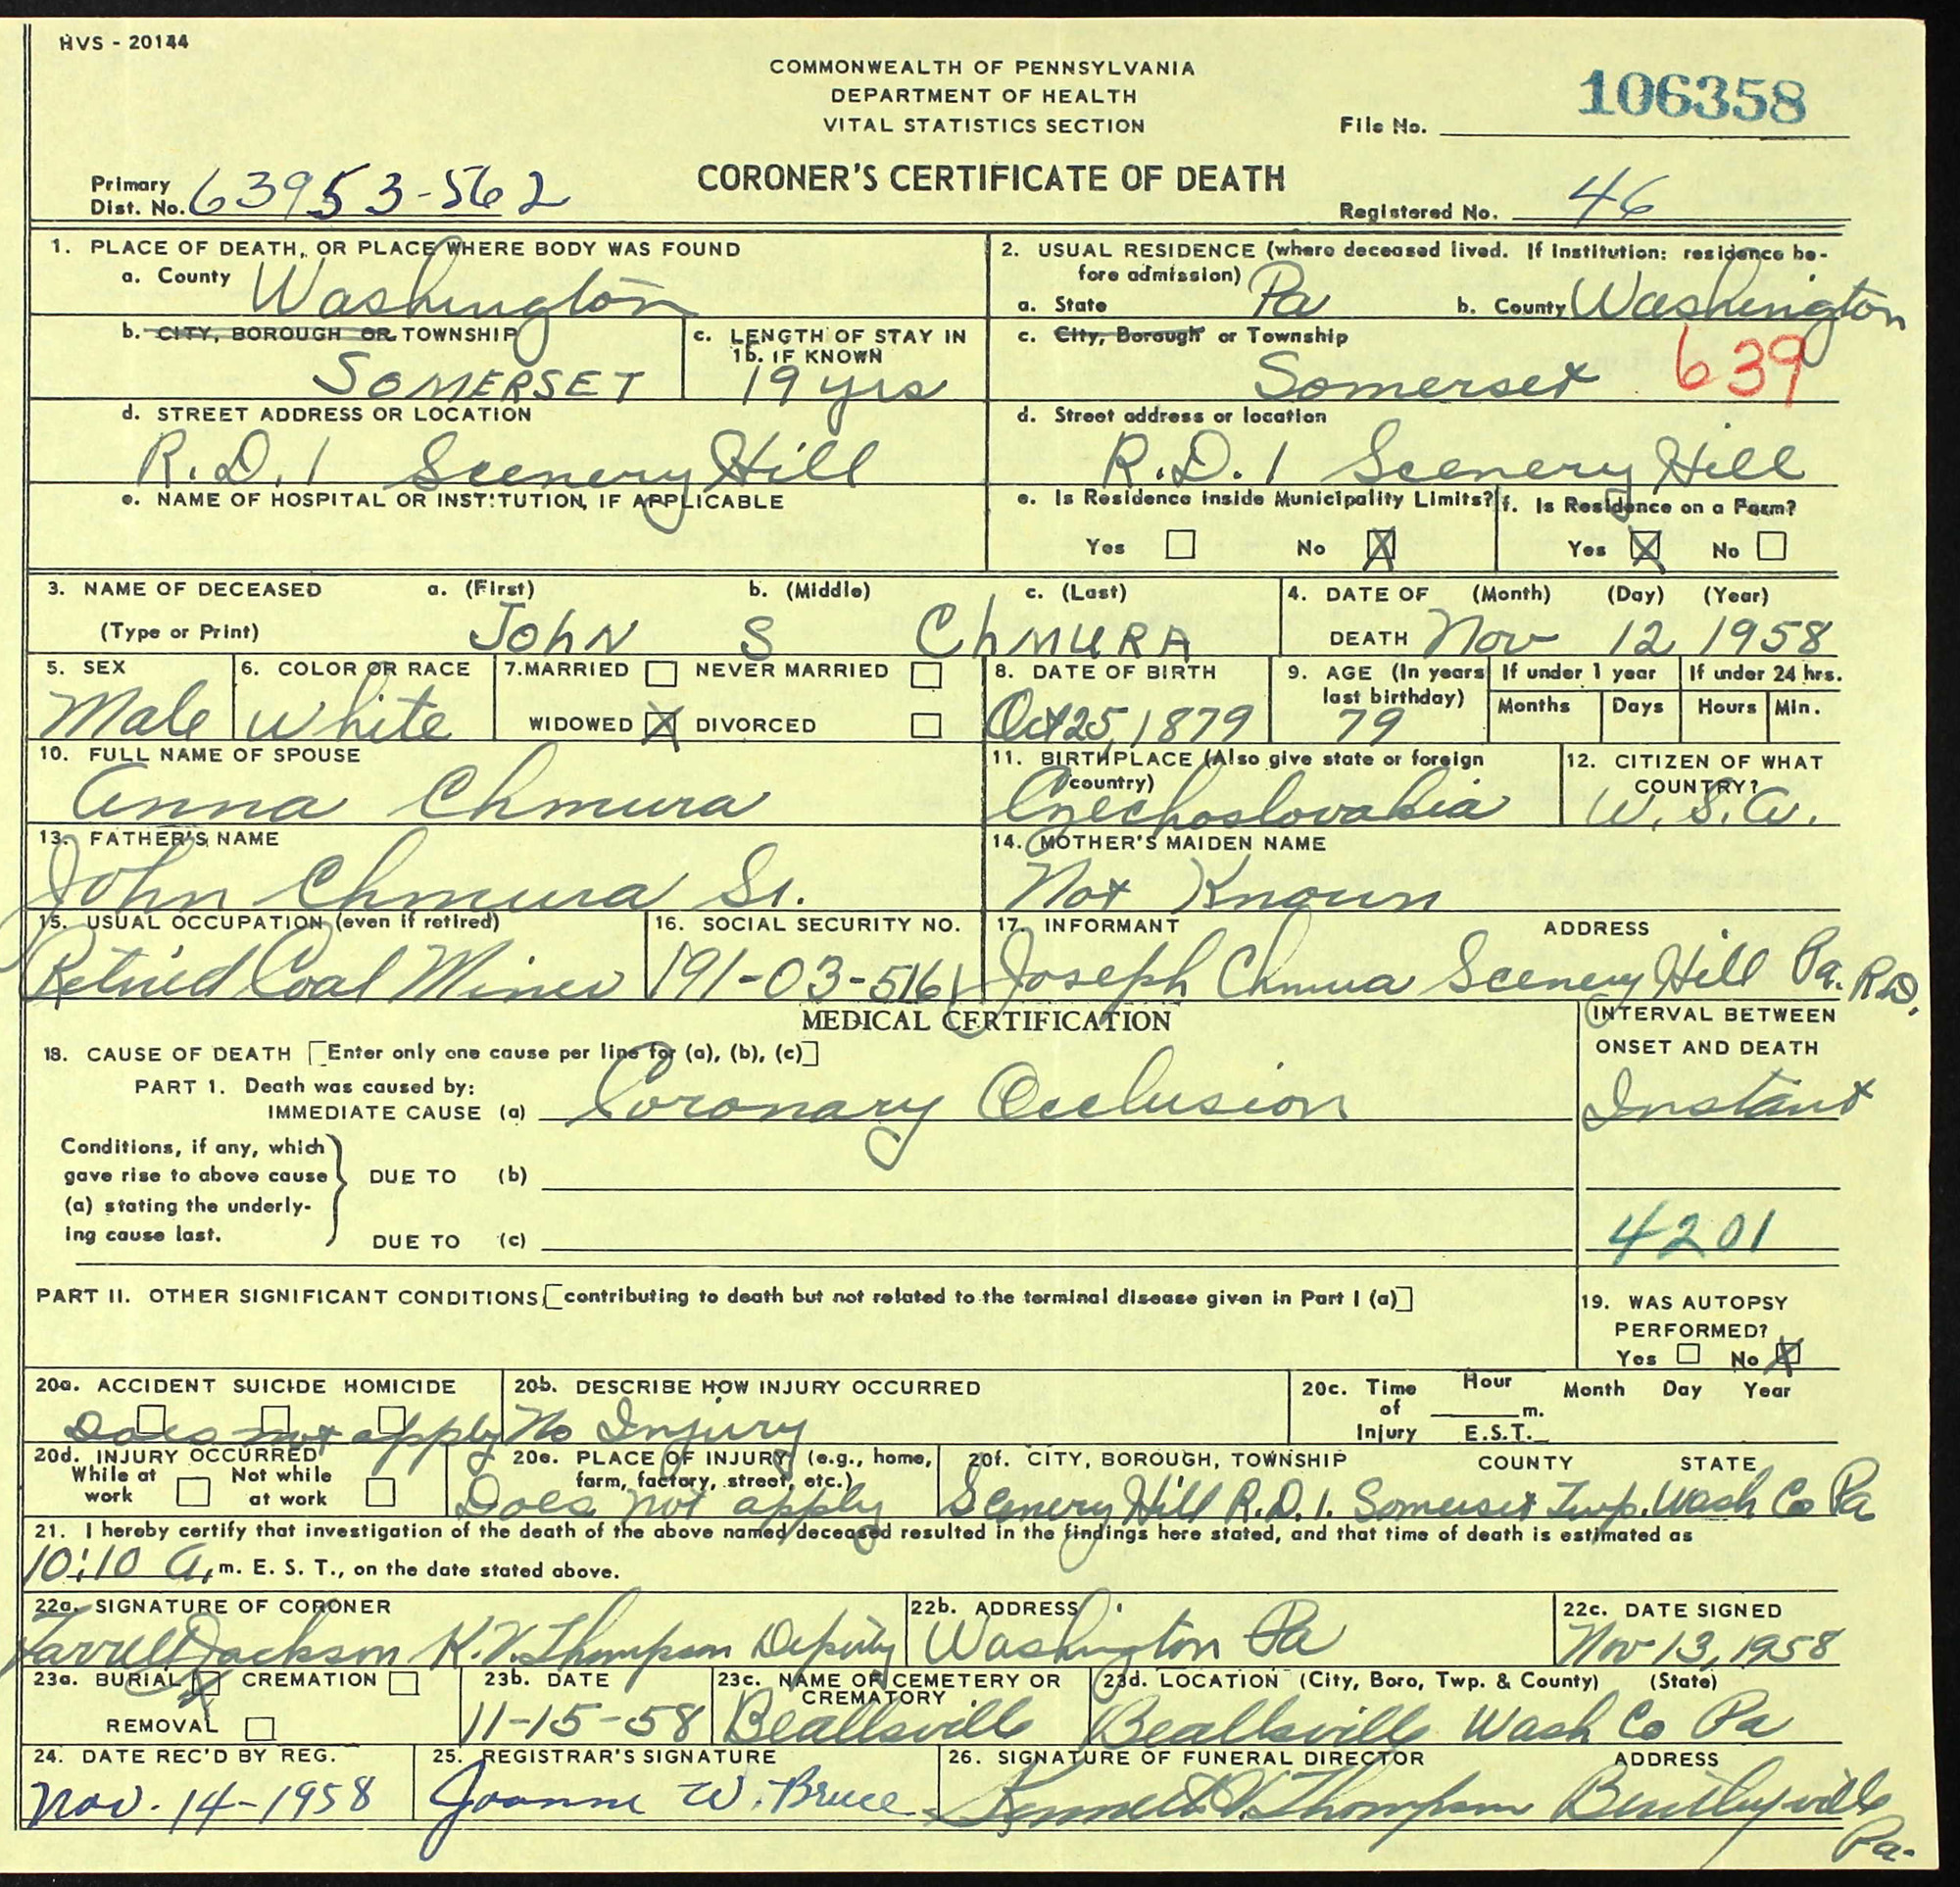 HVS - 20144
COMMONWEALTH OF PENNSYLVANIA
DEPARTMENT OF HEALTH
VITAL STATISTICS SECTION
File No. 106358
Primary
Dist. No. 63953-562
CORONER'S CERTIFICATE OF DEATH
Registered No. 46
1. PLACE OF DEATH, OR PLACE WHERE BODY WAS FOUND
a. County Washington
b. CITY, BOROUGH OR TOWNSHIP
SOMERSET
c. LENGTH OF STAY IN
1b. IF KNOWN
19 yrs
d. STREET ADDRESS OR LOCATION
R.D. 1 Scenery Hill
e. NAME OF HOSPITAL OR INSTITUTION, IF APPLICABLE
2. USUAL RESIDENCE (where deceased lived. If institution: residence be-
fore admission)
a. State Pa b. County Washington
c. City, Borough or Township
Somerset 639
d. Street address or location
R.D. 1 Scenery Hill
e. Is Residence inside Municipality Limits?
Yes No X
f. Is Residence on a Farm?
Yes X No
3. NAME OF DECEASED a. (First) b. (Middle) c. (Last)
(Type or Print) JOhN S ChMURA
4. DATE OF (Month) (Day) (Year)
DEATH Nov 12 1958
5. SEX
Male
6. COLOR OR RACE
White
7. MARRIED NEVER MARRIED
WIDOWED X DIVORCED
8. DATE OF BIRTH
Oct 25, 1879
9. AGE (In years
last birthday)
79
If under 1 year
Months Days
If under 24 hrs.
Hours Min.
10. FULL NAME OF SPOUSE
Anna Chmura
11. BIRTHPLACE (Also give state or foreign
country)
Czechoslovakia
12. CITIZEN OF WHAT
COUNTRY?
U.S.A.
13. FATHER'S NAME
John Chmura Sr.
14. MOTHER'S MAIDEN NAME
Not Known
15. USUAL OCCUPATION (even if retired)
Retired Coal Miner
16. SOCIAL SECURITY NO.
191-03-5161
17. INFORMANT ADDRESS
Joseph Chmura Scenery Hill Pa. R.D.
MEDICAL CERTIFICATION
18. CAUSE OF DEATH [Enter only one cause per line for (a), (b), (c)]
INTERVAL BETWEEN
ONSET AND DEATH
PART 1. Death was caused by:
IMMEDIATE CAUSE (a) Coronary Occlusion Instant
Conditions, if any, which
gave rise to above cause
(a) stating the underly-
ing cause last.
DUE TO (b)
DUE TO (c)
4201
PART II. OTHER SIGNIFICANT CONDITIONS [contributing to death but not related to the terminal disease given in Part I (a)]
19. WAS AUTOPSY
PERFORMED?
Yes No X
20a. ACCIDENT SUICIDE HOMICIDE
Does not apply
20b. DESCRIBE HOW INJURY OCCURRED
No Injury
20c. Time
of
Injury
Hour
m.
E.S.T.
Month Day Year
20d. INJURY OCCURRED
While at
work
Not while
at work
20e. PLACE OF INJURY (e.g., home,
farm, factory, street, etc.)
Does not apply
20f. CITY, BOROUGH, TOWNSHIP COUNTY STATE
Scenery Hill R.D.1. Somerset Twp. Wash Co Pa
21. I hereby certify that investigation of the death of the above named deceased resulted in the findings here stated, and that time of death is estimated as
10:10 A. m. E. S. T., on the date stated above.
22a. SIGNATURE OF CORONER
Farrell Jackson K.V. Thompson Deputy
22b. ADDRESS
Washington Pa
22c. DATE SIGNED
Nov 13, 1958
23a. BURIAL X CREMATION
REMOVAL
23b. DATE
11-15-58
23c. NAME OF CEMETERY OR
CREMATORY
Beallsville
23d. LOCATION (City, Boro, Twp. & County) (State)
Beallsville Wash Co Pa
24. DATE REC'D BY REG.
Nov. 14-1958
25. REGISTRAR'S SIGNATURE
Joanne W. Bruce
26. SIGNATURE OF FUNERAL DIRECTOR ADDRESS
Kenneth V. Thompson Bentleyville
Pa.